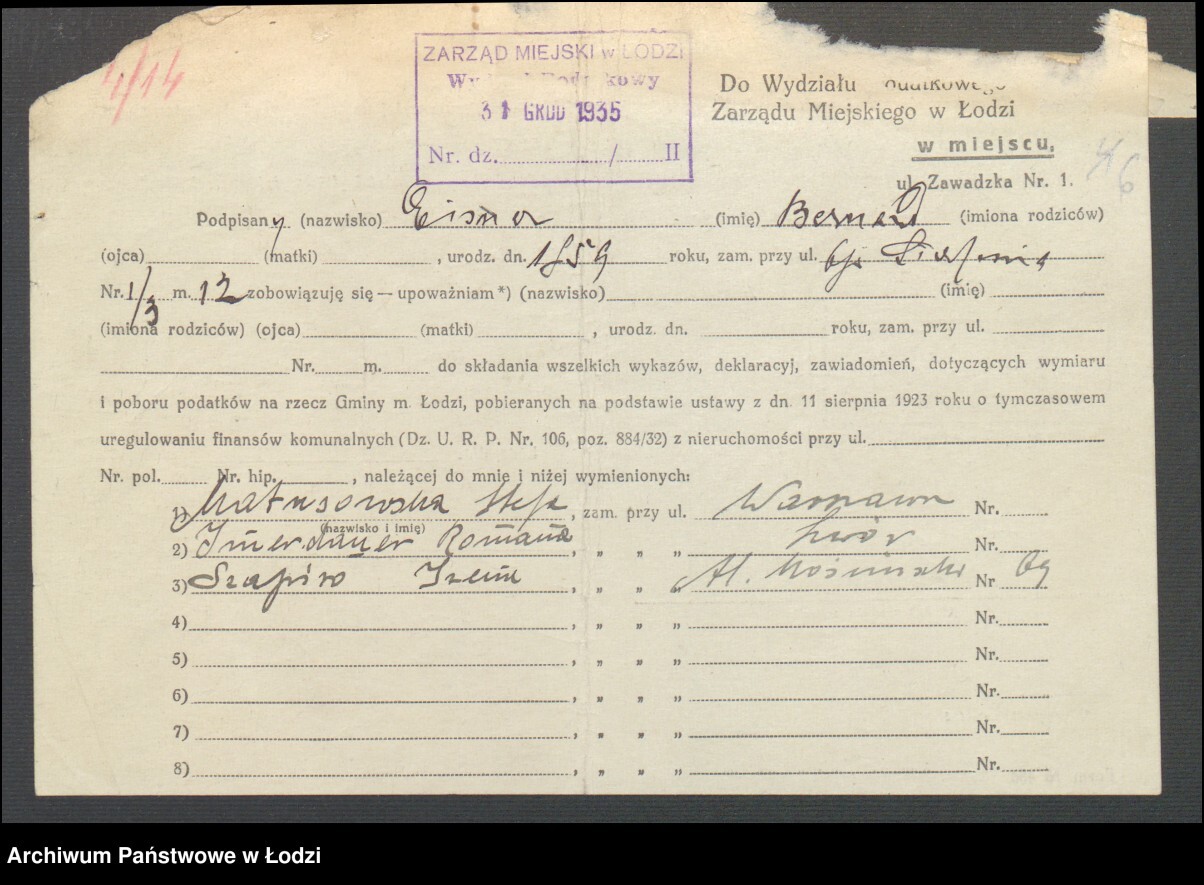 4/14
ZARZĄD MIEJSKI w ŁODZI
Wy Podatkowy
31 GRUD 1935
Nr. dz. / II
Do Wydziału Podatkowego
Zarządu Miejskiego w Łodzi
w miejscu,
ul. Zawadzka Nr. 1.
6
Podpisany (nazwisko) Eisner (imię) Bernard (imiona rodziców)
(ojca) (matki) , urodz. dn. 1859 roku, zam. przy ul.
Nr. 1/3 m. 12 zobowiązuję się — upoważniam *) (nazwisko) (imię)
(imiona rodziców) (ojca) (matki) , urodz. dn. roku, zam. przy ul.
Nr. m. do składania wszelkich wykazów, deklaracyj, zawiadomień, dotyczących wymiaru
i poboru podatków na rzecz Gminy m. Łodzi, pobieranych na podstawie ustawy z dn. 11 sierpnia 1923 roku o tymczasowem
uregulowaniu finansów komunalnych (Dz. U. R. P. Nr. 106, poz. 884/32) z nieruchomości przy ul.
Nr. pol. Nr. hip. , należącej do mnie i niżej wymienionych:
1) Matusowska Stefa , zam. przy ul. Warszawa Nr.
(nazwisko i imię)
2) Romana , „ „ „ Lwów Nr.
3) Szapiro Irena , „ „ „ Al. Kościuszki Nr 69
4) , „ „ „ Nr.
5) , „ „ „ Nr.
6) , „ „ „ Nr.
7) , „ „ „ Nr.
8) , „ „ „ Nr.
Archiwum Państwowe w Łodzi